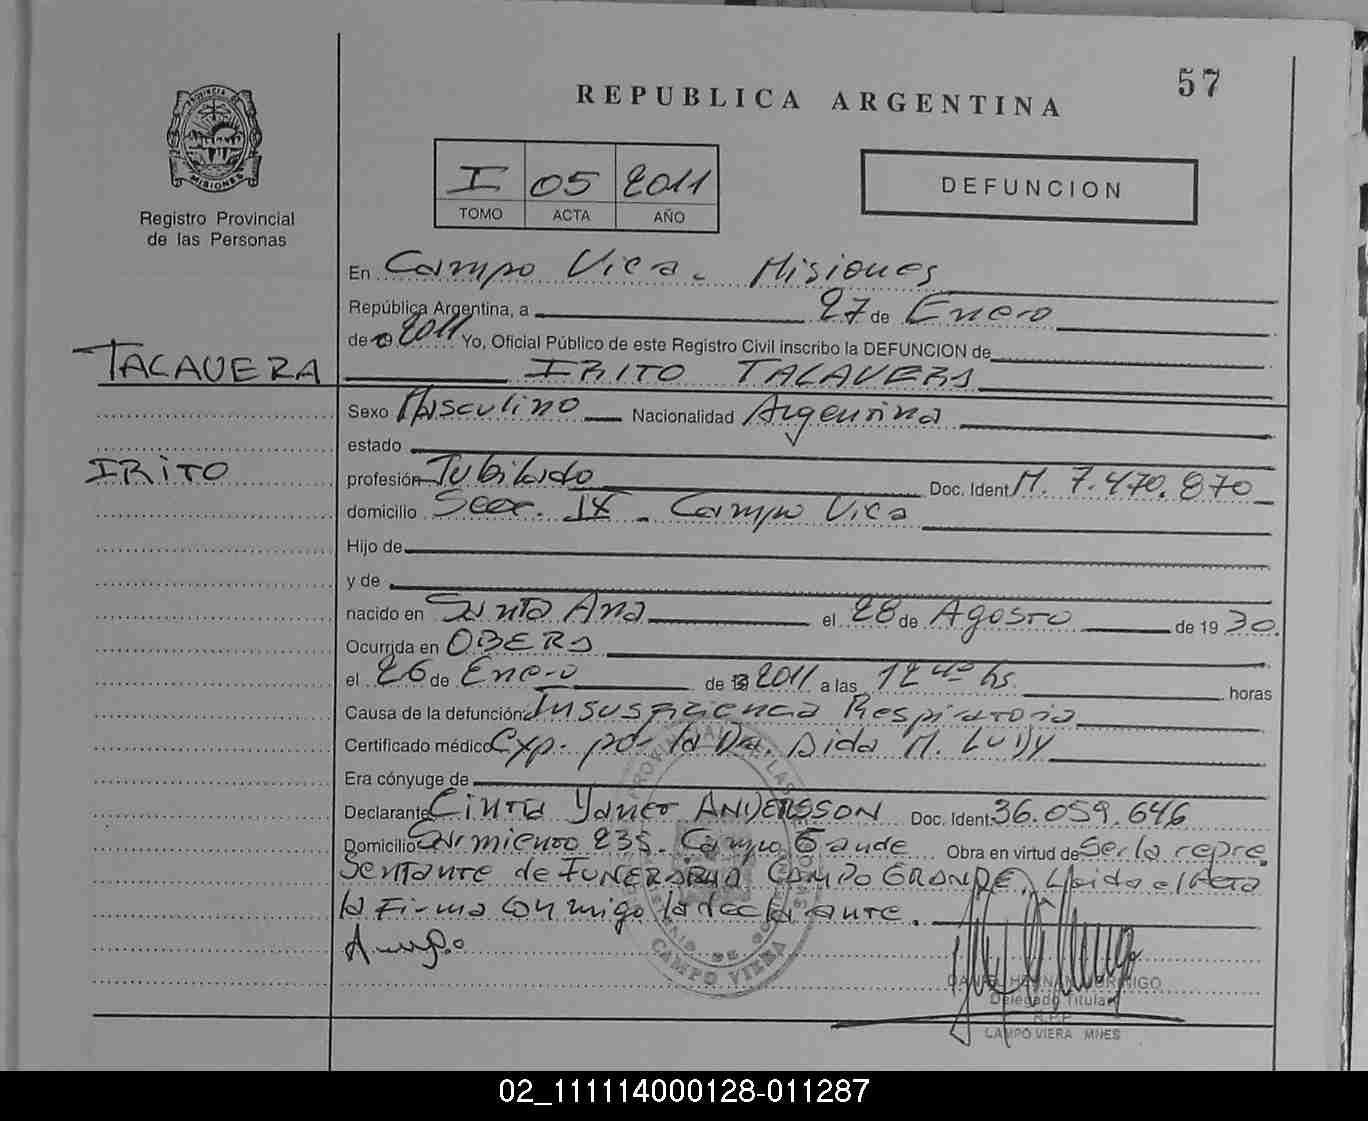 57
REPUBLICA ARGENTINA
PROVINCIA DE
MISIONES
Registro Provincial
de las Personas
I 05 2011
TOMO ACTA AÑO
DEFUNCION
En Campo Viera. Misiones
República Argentina, a 27 de Enero
de 2011 Yo, Oficial Público de este Registro Civil inscribo la DEFUNCION de
TALAVERA
IRITO TALAVERA
Sexo Masculino Nacionalidad Argentina
estado
IRITO
profesión Jubilado Doc. Ident M. 7.470.870
domicilio Secc. IX - Campo Viera
Hijo de
y de
nacido en Santa Ana el 28 de Agosto de 1930.
Ocurrida en OBERA
el 26 de Enero de 2011 a las 12 hs. horas
Causa de la defunción: Insuficiencia Respiratoria
Certificado médico Exp. por la Dra. Aida M.
Era cónyuge de
Declarante ANDERSSON Doc. Ident: 36.059.646
Domicilio Sarmiento 235. Campo Grande Obra en virtud de Ser la repre
sentante de FUNERARIA CAMPO GRANDE. Leida el Acta
la Firma conmigo la declarante.
CAMPO VIERA
Delegado Titular
R.P.P.
CAMPO VIERA MNES
02_111114000128-011287